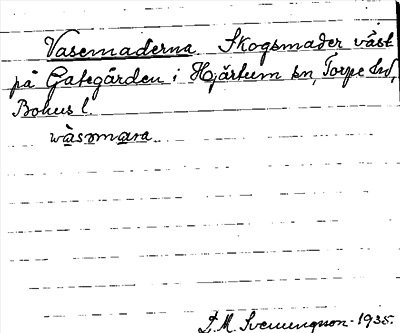 Vasemaderna Skogsmader väst
på Gategården i Hjärtum sn, Torpe hd,
Bohus l.
wàsəmara
D.M. Svenungson - 1935.